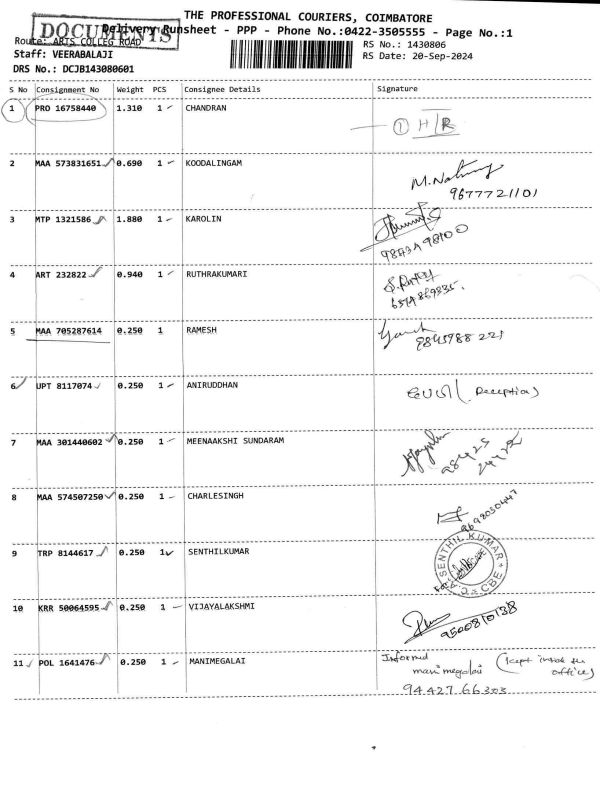 THE PROFESSIONAL COURIERS, COIMBATORE
DOCUMENTS
Delivery Runsheet - PPP - Phone No.:0422-3505555 - Page No.:1
Route: ARTS COLLEG ROAD RS No.: 1430806
Staff: VEERABALAJI RS Date: 20-Sep-2024
DRS No.: DCJB143080601
S No Consignment No Weight PCS Consignee Details Signature
1 PRO 16758440 1.310 1 CHANDRAN
① H/R
2 MAA 573831651 0.690 1 KOODALINGAM
9677721101
3 MTP 1321586 1.880 1 KAROLIN
4 ART 232822 0.940 1 RUTHRAKUMARI
5 MAA 705287614 0.250 1 RAMESH
9845988 221
6 UPT 8117074 0.250 1 ANIRUDDHAN
(Reception)
7 MAA 301440602 0.250 1 MEENAAKSHI SUNDARAM
98425
24422
8 MAA 574507250 0.250 1 CHARLESINGH
9698050447
9 TRP 8144617 0.250 1 SENTHILKUMAR
SENTHIL KUMAR
CBE
10 KRR 50064595 0.250 1 VIJAYALAKSHMI
9500810138
11 POL 1641476 0.250 1 MANIMEGALAI
Informed
manimegalai
(kept inside the office)
94427 66303